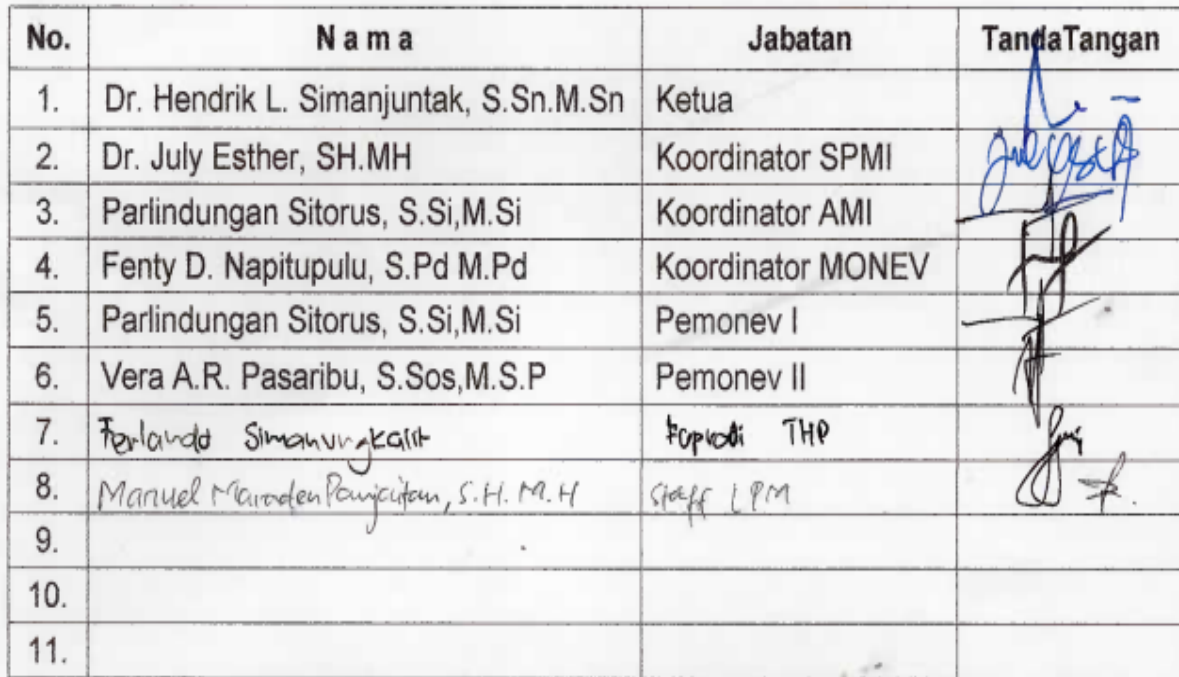 No. N a m a Jabatan TandaTangan
1. Dr. Hendrik L. Simanjuntak, S.Sn.M.Sn Ketua
2. Dr. July Esther, SH.MH Koordinator SPMI
3. Parlindungan Sitorus, S.Si,M.Si Koordinator AMI
4. Fenty D. Napitupulu, S.Pd M.Pd Koordinator MONEV
5. Parlindungan Sitorus, S.Si,M.Si Pemonev I
6. Vera A.R. Pasaribu, S.Sos,M.S.P Pemonev II
7. Ferlando Simanungkalit Kaprodi THP
8. Manuel Maraden Panjaitan, S.H. M.H Staff LPM
9.
10.
11.